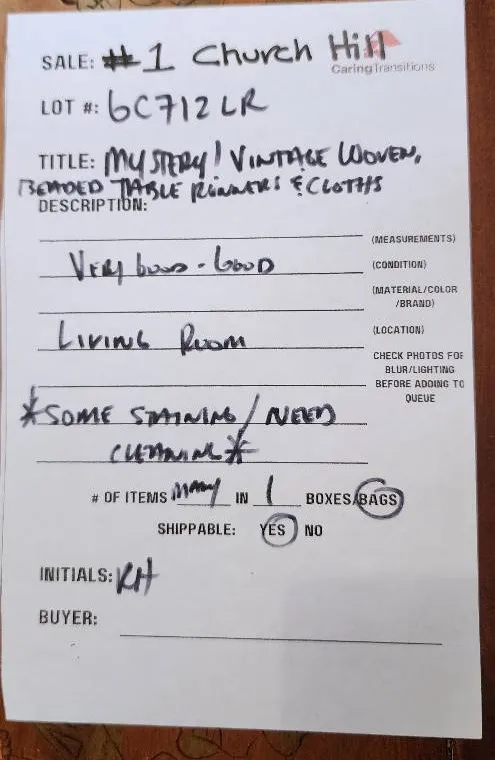 SALE: #1 Church Hill
CaringTransitions
LOT #: 6C712LR
TITLE: MYSTERY! VINTAGE WOVEN,
BEADED TABLE RUNNERS & CLOTHS
DESCRIPTION:
(MEASUREMENTS)
VERY GOOD - GOOD (CONDITION)
(MATERIAL/COLOR
/BRAND)
LIVING ROOM (LOCATION)
CHECK PHOTOS FOR
BLUR/LIGHTING
BEFORE ADDING TO
QUEUE
*SOME STAINING/NEED
CLEANING*
# OF ITEMS MANY IN 1 BOXES/BAGS
SHIPPABLE: YES NO
INITIALS: KH
BUYER: